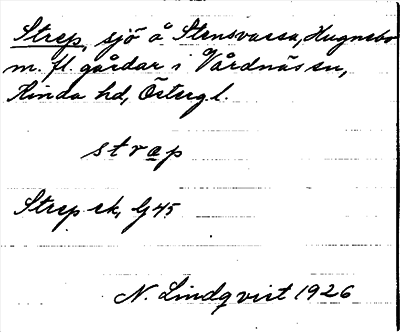 Strep, sjö å Stensvassa, Hugnebo
m. fl. gårdar i Vårdnäs sn,
Kinda hd, Östergl.
strep
Strep ek, G45
N. Lindqvist 1926